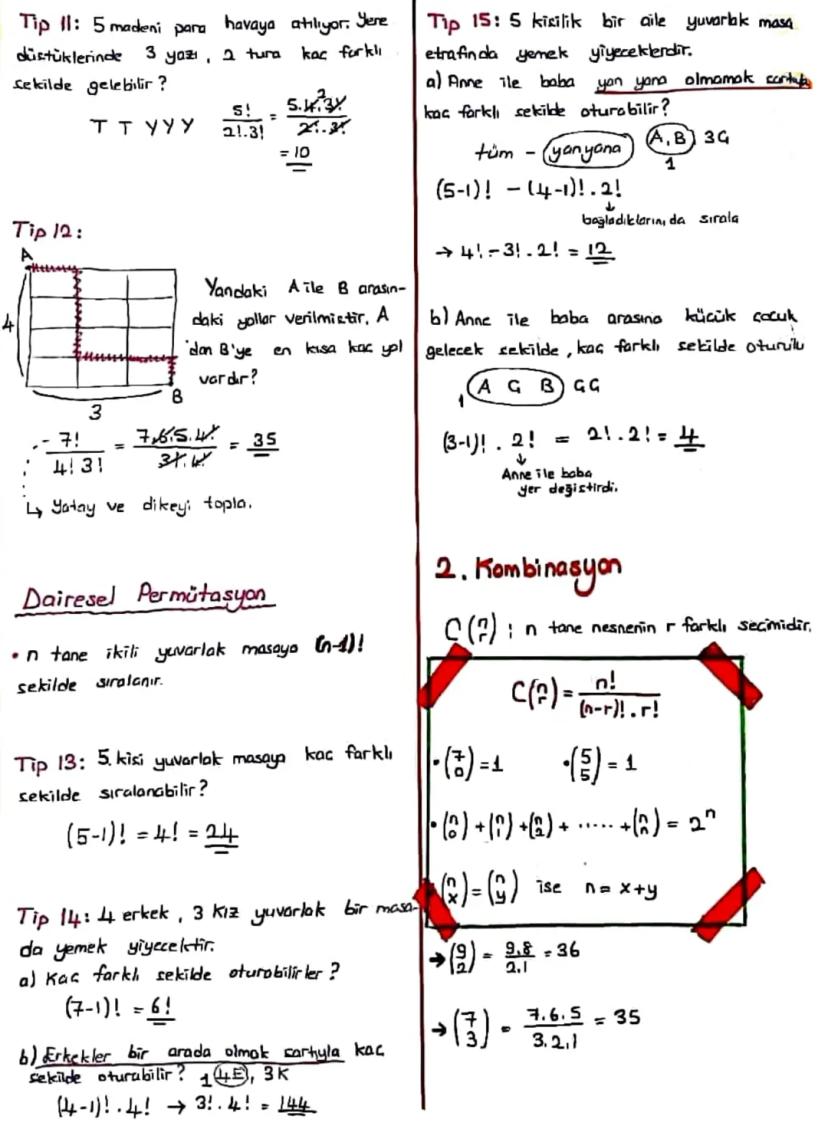 Tip 11: 5 madeni para havaya atılıyor. Yere
düştüklerinde 3 yazı, 2 tura kaç farklı
şekilde gelebilir?
T T Y Y Y 5!/2!.3! = 5.4.3!/2!.3!
= 10
Tip 12:
A
4
3
B
Yandaki A ile B arasın-
daki yollar verilmiştir. A
'dan B'ye en kısa kaç yol
vardır?
7!/4!3! = 7.6.5.4!/3!.4! = 35
↳ Yatay ve dikeyi topla.
Dairesel Permütasyon
• n tane ikili yuvarlak masaya (n-1)!
şekilde sıralanır.
Tip 13: 5 kişi yuvarlak masaya kaç farklı
şekilde sıralanabilir?
(5-1)! = 4! = 24
Tip 14: 4 erkek, 3 kız yuvarlak bir masa-
da yemek yiyecektir.
a) Kaç farklı şekilde oturabilirler?
(7-1)! = 6!
b) Erkekler bir arada olmak şartıyla kaç
şekilde oturabilir? 1 4E, 3K
(4-1)!.4! → 3!.4! = 144
Tip 15: 5 kişilik bir aile yuvarlak masa
etrafında yemek yiyeceklerdir.
a) Anne ile baba yan yana olmamak şartıyla
kaç farklı şekilde oturabilir?
tüm - yanyana A,B 3Ç
1
(5-1)! - (4-1)!.2!
↓
bağladıklarını da sırala
→ 4! - 3!.2! = 12
b) Anne ile baba arasına küçük çocuk
gelecek şekilde, kaç farklı şekilde oturulu
1 A Ç B ÇÇ
(3-1)!.2! = 2!.2! = 4
↓
Anne ile baba
yer değiştirdi.
2. Kombinasyon
C(n r) : n tane nesnenin r farklı seçimidir.
C(n r) = n!/(n-r)!.r!
• (7 0) = 1 • (5 5) = 1
• (n 0) + (n 1) + (n 2) + ...... + (n n) = 2ⁿ
(n x) = (n y) ise n = x+y
→ (9 2) = 9.8/2.1 = 36
→ (7 3) = 7.6.5/3.2.1 = 35